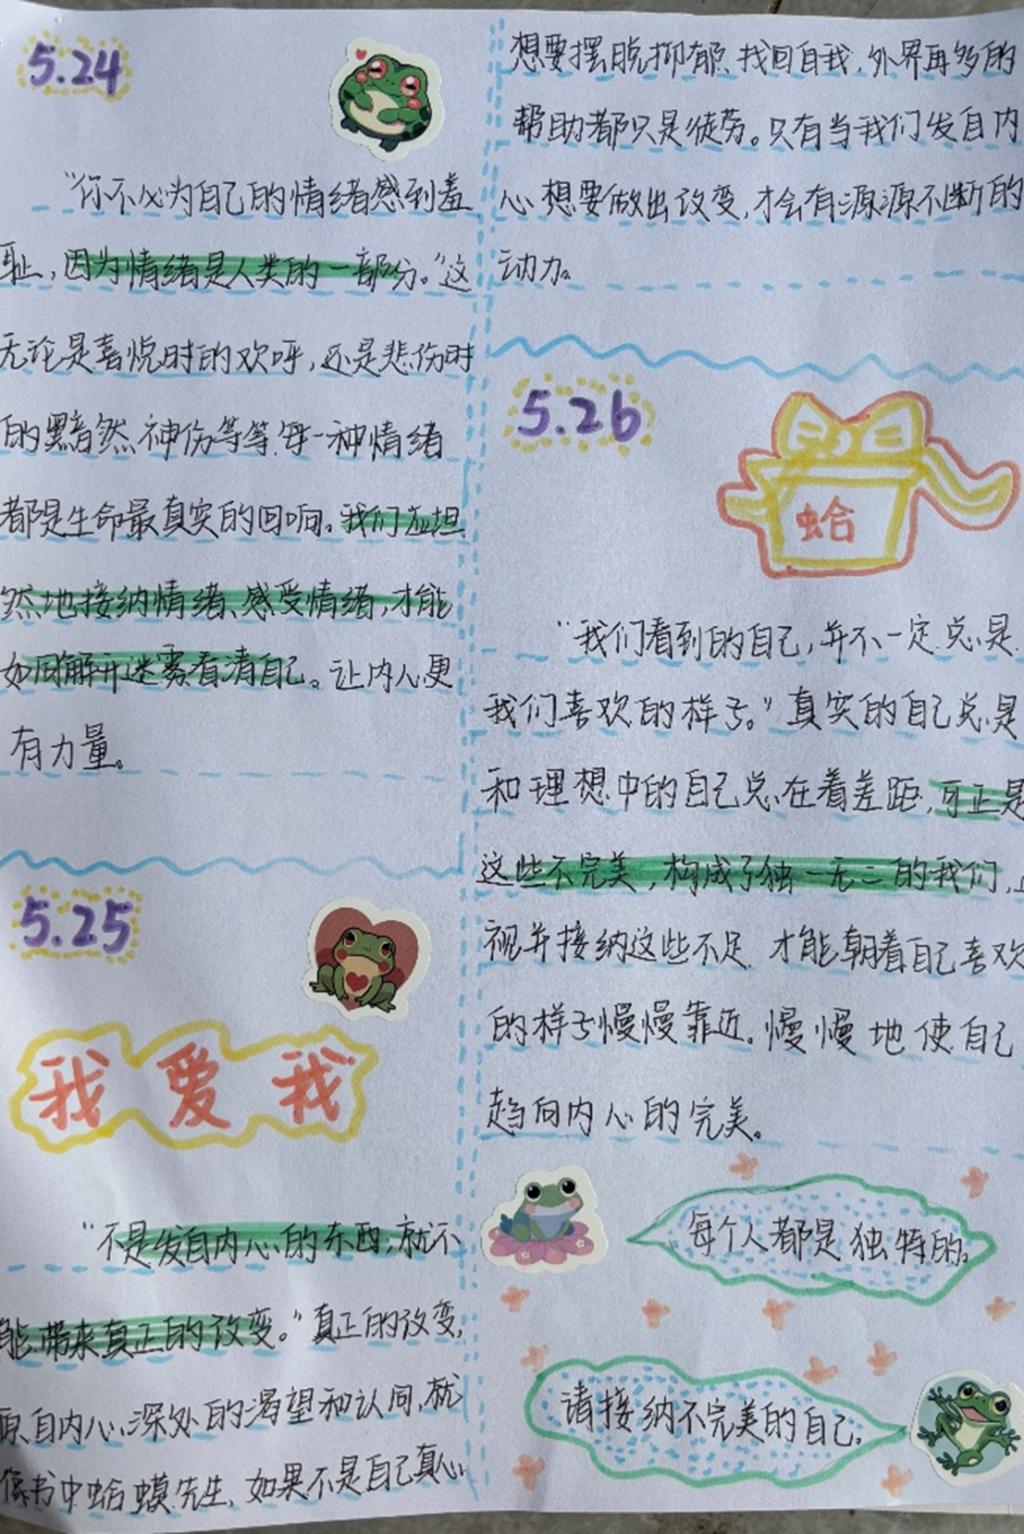 5.24
“你不必为自己的情绪感到羞
耻,因为情绪是人类的一部分。”这
无论是喜悦时的欢呼,还是悲伤时
的黯然神伤等等.每一种情绪
都是生命最真实的回响。我们应坦
然地接纳情绪、感受情绪,才能
如同解开迷雾看清自己。让内心更
有力量。
5.25
我爱我
“不是发自内心的东西,就不
能带来真正的改变。”真正的改变,
原自内心深处的渴望和认同,就
像书中蛤蟆先生,如果不是自己真心
想要摆脱抑郁、找回自我,外界再多的
帮助都只是徒劳。只有当我们发自内
心想要做出改变,才会有源源不断的
动力。
5.26
蛤
“我们看到的自己,并不一定总是
我们喜欢的样子。”真实的自己总是
和理想中的自己总在着差距,可正是
这些不完美,构成了独一无二的我们,
视并接纳这些不足.才能朝着自己喜欢
的样子慢慢靠近。慢慢地使自己
趋向内心的完美。
每个人都是独特的。
请接纳不完美的自己。